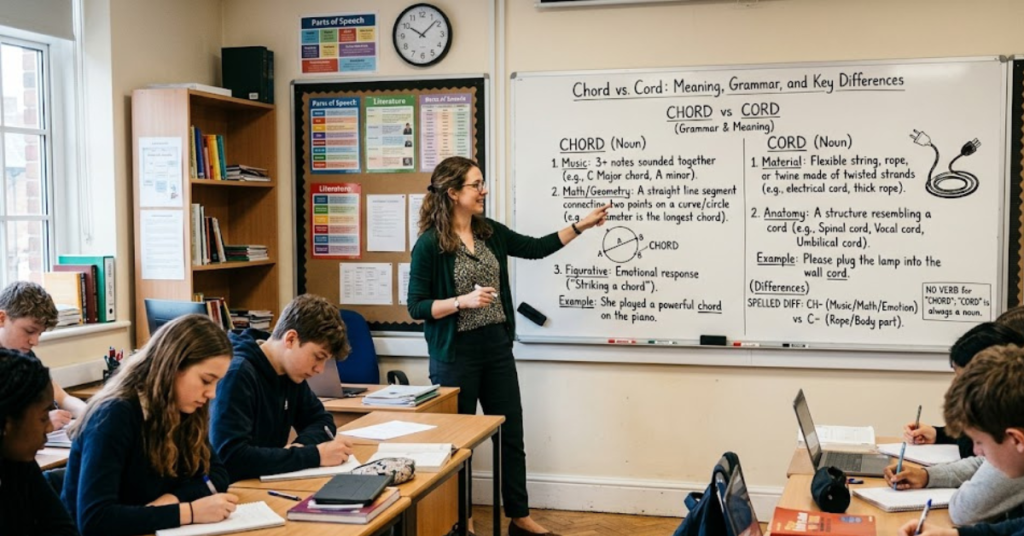 Parts of Speech
Parts of Speech
Literature
Parts of Speech
Literature
Chord vs. Cord: Meaning, Grammar, and Key Differences
CHORD vs CORD
(Grammar & Meaning)
CHORD (Noun)
1. Music: 3+ notes sounded together
(e.g., C Major chord, A minor).
2. Math/Geometry: A straight line segment
connecting two points on a curve/circle
(e.g., meter is the longest chord).
A
B
A
B
CHORD
3. Figurative: Emotional response
("Striking a chord").
Example: She played a powerful chord
on the piano.
CORD (Noun)
1. Material: Flexible string, rope,
or twine made of twisted strands
(e.g., electrical cord, thick rope).
2. Anatomy: A structure resembling a
cord (e.g., Spinal cord, Vocal cord,
Umbilical cord).
Example: Please plug the lamp into the
wall cord.
(Differences)
SPELLED DIFF: CH- (Music/Math/Emotion)
vs C- (Rope/Body part).
NO VERB for
"CHORD", "CORD" is
always a noun.